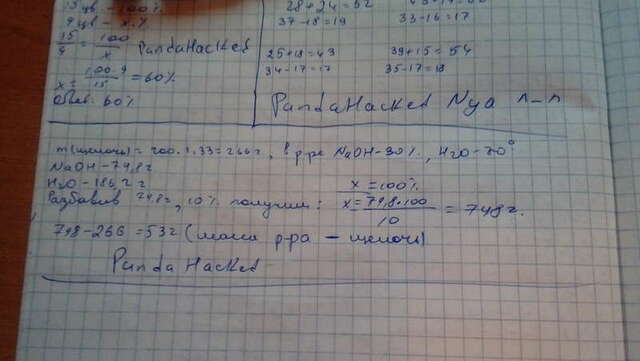 15 цв. - 100%
9 цв - x %
15/9 = 100/x PandaHacket
x = 100·9/15 = 60%
Ответ: 60%
28+24=52
37-18=19
33-16=17
25+18=43
39+15=54
34-17=17
35-17=18
PandaHacket Nya n_n
m(щелочи) = 200·1,33=266г, в р-ре NaOH-30%, H2O-70°
NaOH-79,8г
H2O-186,2г
Разбавив 79,8г, 10% получим:
x = 100%
x = 79,8·100/10 = 798г.
798-266=532 (масса р-ра - щелочи)
Panda Hacket